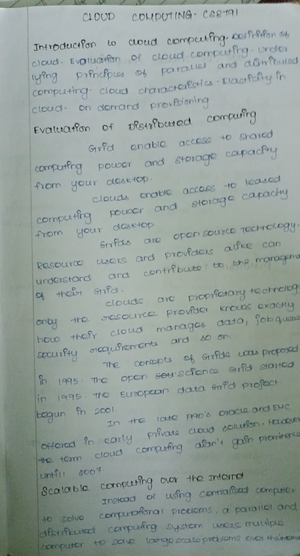 CLOUD COMPUTING - CS8791
Introduction to cloud computing - Definition of
cloud - Evaluation of cloud computing - under
lying principles of parallel and distributed
computing - cloud characteristics - Elasticity in
cloud - on demand provisioning
Evaluation of Distributed computing
Grid enable access to shared
computing power and storage capacity
from your desktop.
Clouds enable access to leased
computing power and storage capacity
from your desktop
Grids are open source technology.
Resource users and providers alike can
understand and contribute to the management
of their Grid.
Clouds are proprietary technology
only the resource provider knows exactly
how their cloud manages data, job queue
security requirements and so on.
The concepts of Grids was proposed
in 1995. The open science Grid started
in 1995. The European data Grid project
began in 2001.
In the late 1990's oracle and EMC
offered in early private cloud solution. However
the term cloud computing didn't gain prominence
until 2007.
Scalable computing over the Internet
Instead of using centralised computer
to solve computational problems, a parallel and
distributed computing system uses multiple
computer to solve large scale problems over the